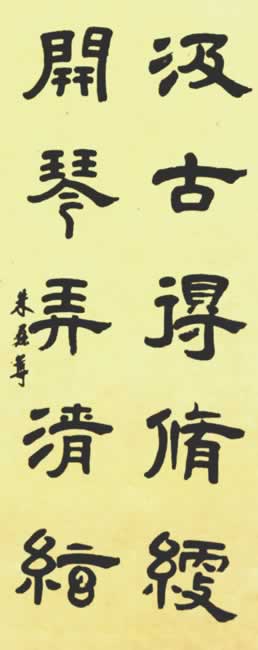 汲古得脩綆
開琴弄清絃
朱彝尊